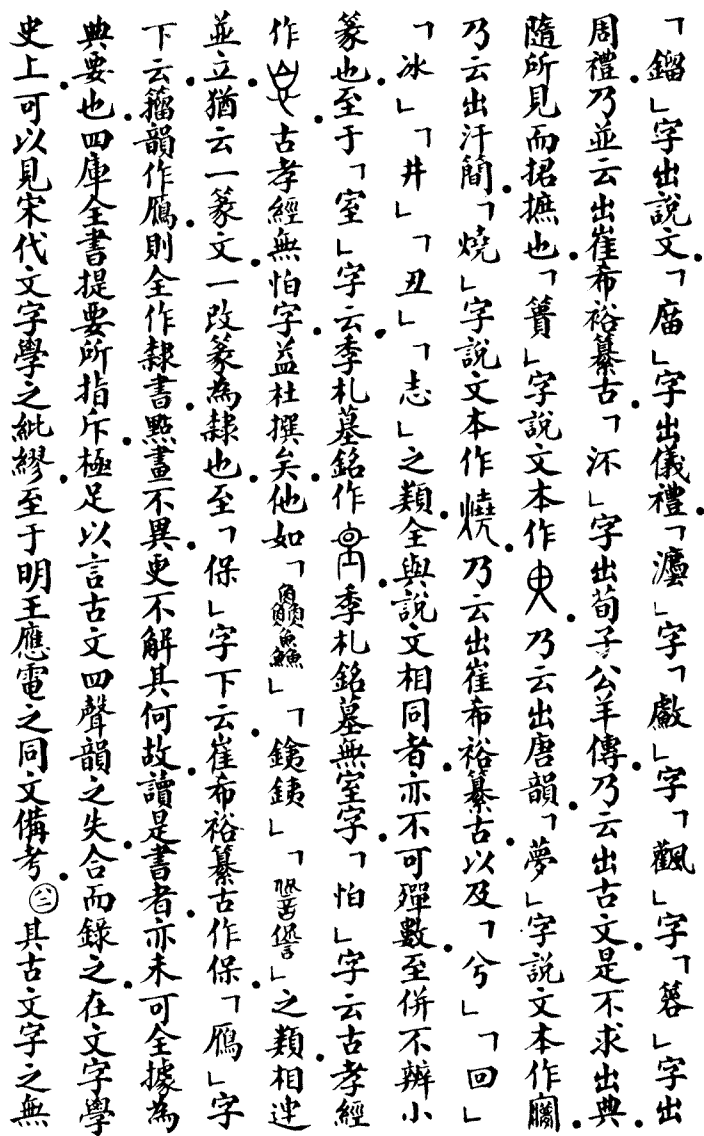 「鎦」字出說文「庿」字出儀禮「灋」字「獻」字「飌」字「簭」字出
周禮乃並云出崔希裕纂古「沶」字出荀子公羊傳乃云出古文是不求出典
隨所見而捃摭也「簣」字說文本作乃云出唐韻「夢」字說文本作
乃云出汗簡「燒」字說文本作燒乃云出崔希裕纂古以及「兮」「回」
「冰」「井」「丑」「志」之類全與說文相同者亦不可殫數至併不辨小
篆也至于「室」字云季札墓銘作季札銘墓無室字「怕」字云古孝經
作古孝經無怕字益杜撰矣他如「」「銕銕」「」之類相連
並立猶云一篆文一改篆為隸也至「保」字下云崔希裕纂古作保「鴈」字
下云籀韻作鴈則全作隸書點畫不異更不解其何故讀是書者亦未可全據為
典要也四庫全書提要所指斥極足以言古文四聲韻之失合而錄之在文字學
史上可以見宋代文字學之紕繆至于明王應電之同文備考㈧㈡其古文字之無